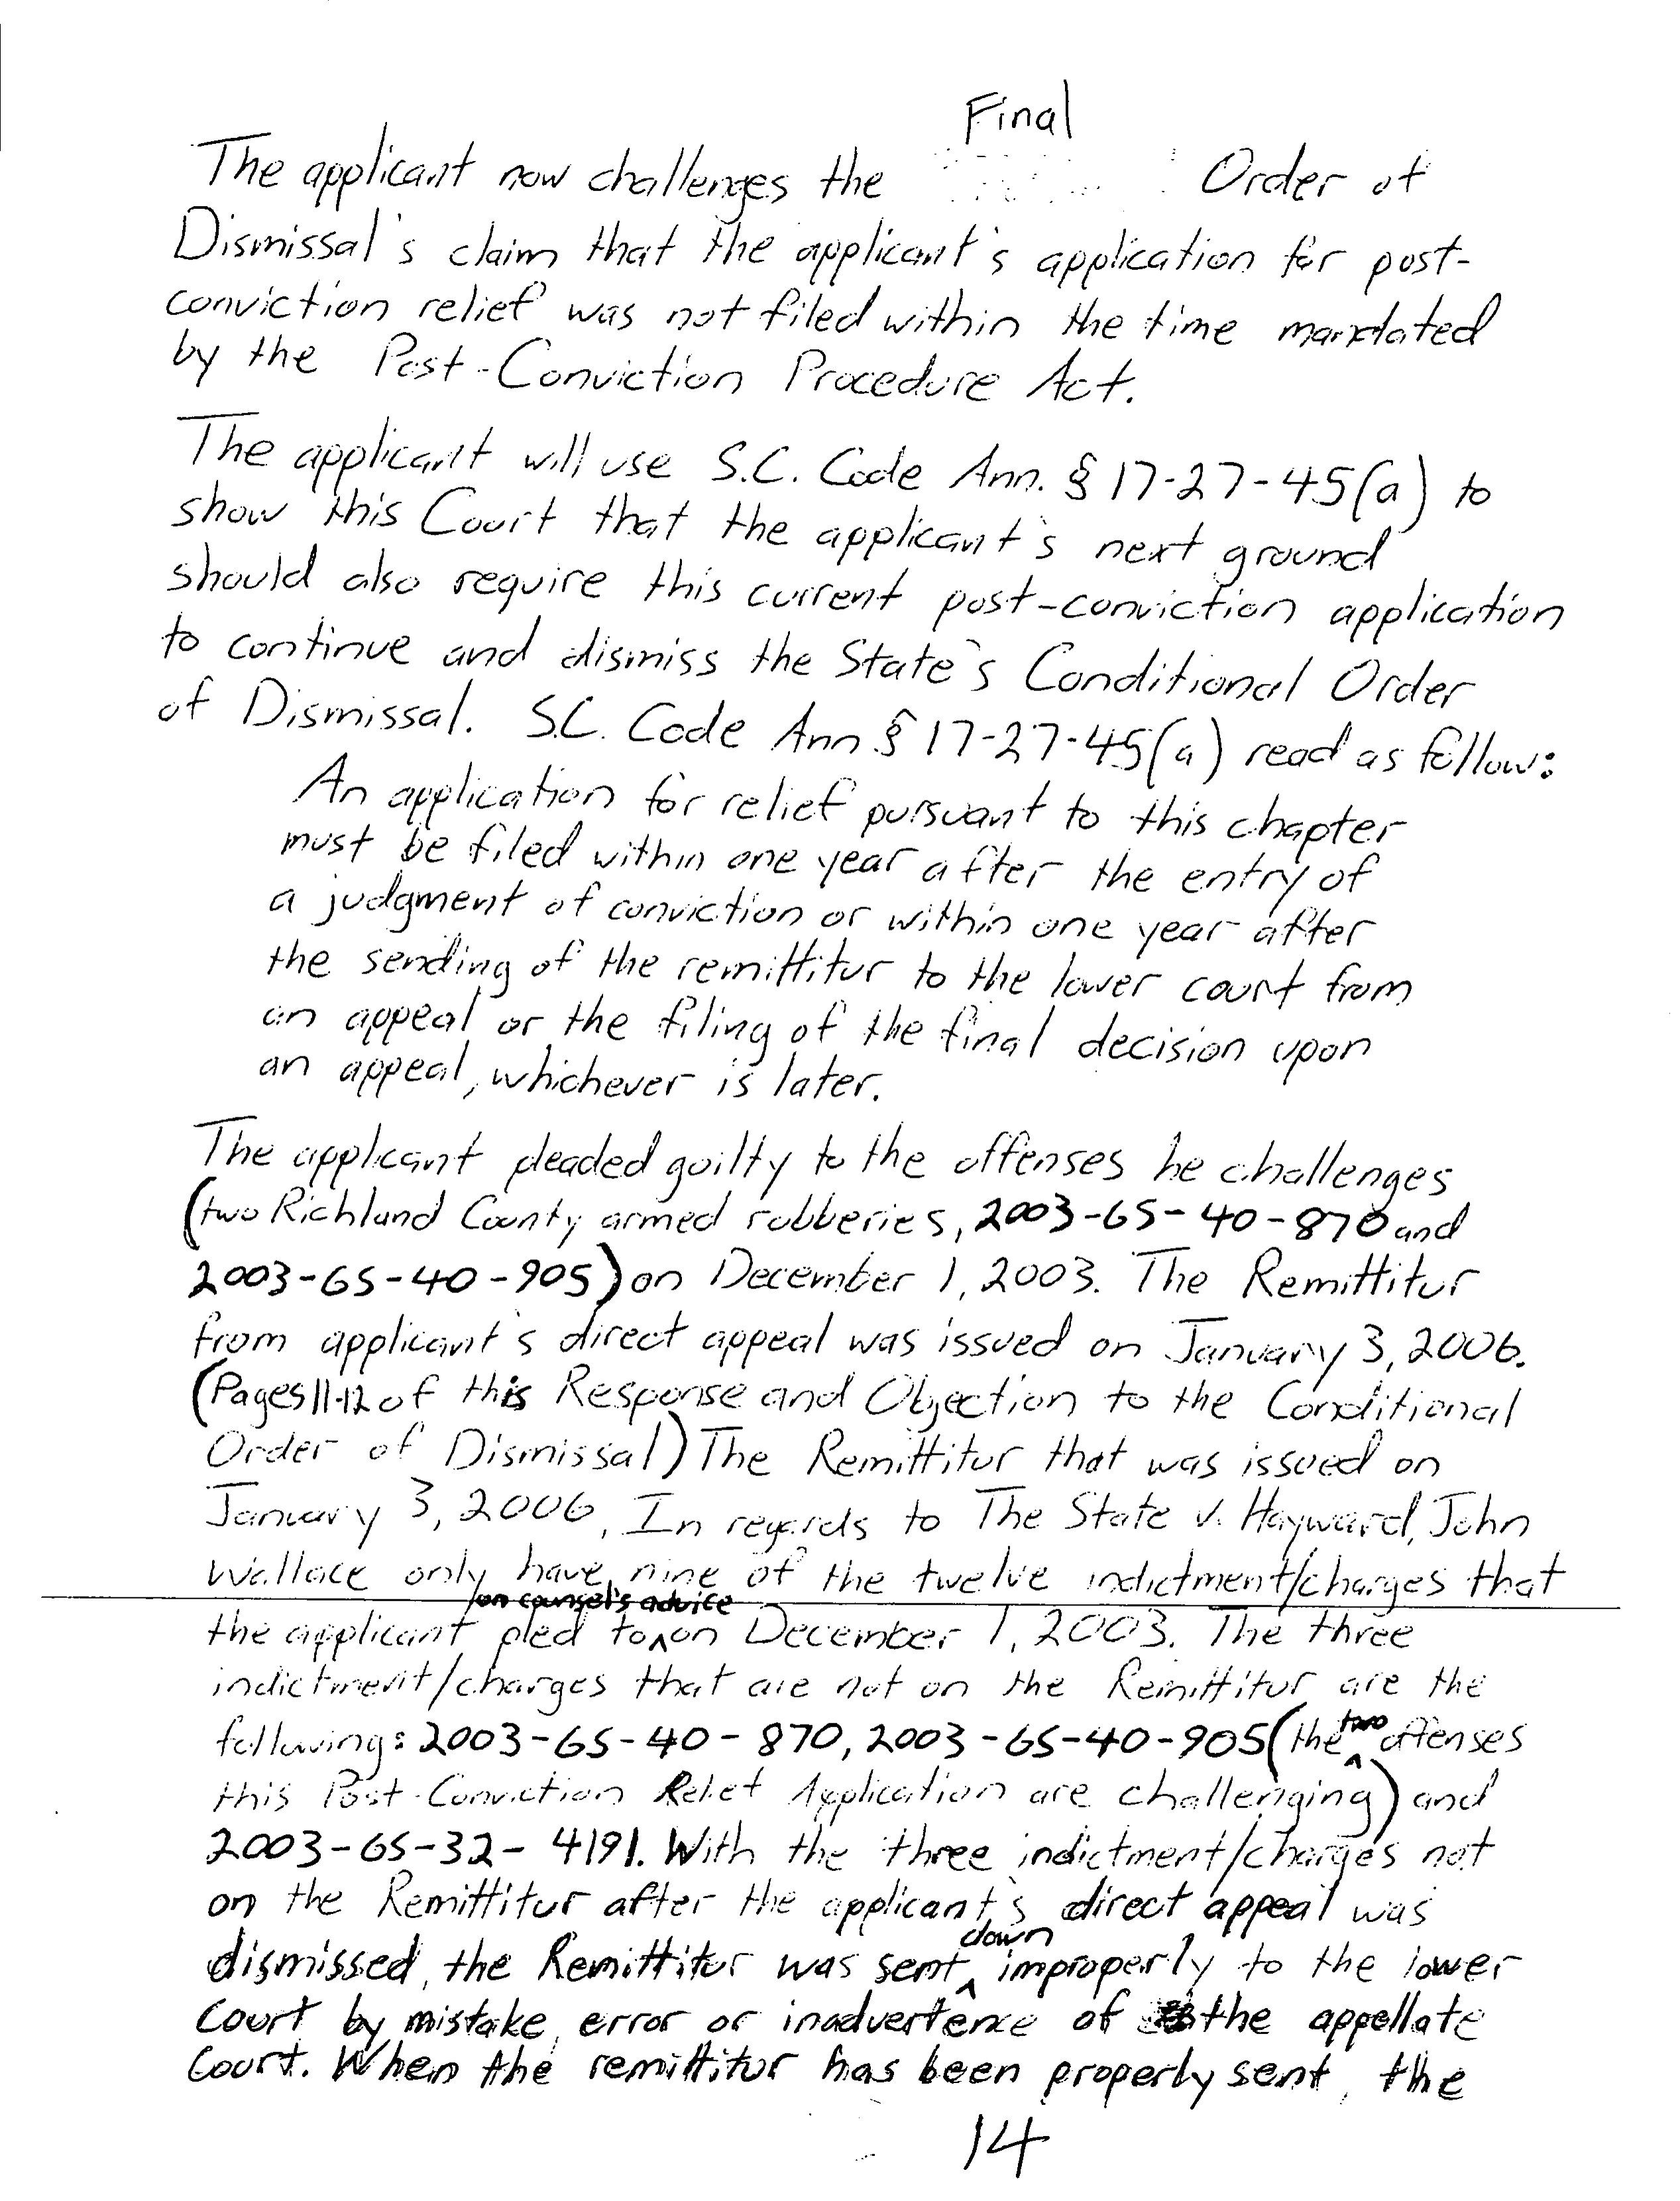 Final
The applicant now challenges the Order of
Dismissal's claim that the applicant's application for post-
conviction relief was not filed within the time mandated
by the Post-Conviction Procedure Act.
The applicant will use S.C. Code Ann. § 17-27-45(a) to
show this Court that the applicant's next ground
should also require this current post-conviction application
to continue and dismiss the State's Conditional Order
of Dismissal. S.C. Code Ann § 17-27-45(a) read as follow:
An application for relief pursuant to this chapter
must be filed within one year after the entry of
a judgment of conviction or within one year after
the sending of the remittitur to the lower court from
an appeal or the filing of the final decision upon
an appeal, whichever is later.
The applicant pleaded guilty to the offenses he challenges
(two Richland County armed robberies, 2003-GS-40-870 and
2003-GS-40-905) on December 1, 2003. The Remittitur
from applicant's direct appeal was issued on January 3, 2006.
(Pages 11-12 of this Response and Objection to the Conditional
Order of Dismissal) The Remittitur that was issued on
January 3, 2006, In regards to The State v. Hayward, John
Wallace only have nine of the twelve indictment/charges that
on counsel's advice
the applicant pled to on December 1, 2003. The three
indictment/charges that are not on the Remittitur are the
following: 2003-GS-40-870, 2003-GS-40-905 (the two offenses
this Post-Conviction Relief Application are challenging) and
2003-GS-32-4191. With the three indictment/charges not
on the Remittitur after the applicant's direct appeal was
dismissed, the Remittitur was sent down improperly to the lower
Court by mistake, error or inadvertence of the appellate
Court. When the remittitur has been properly sent, the
14